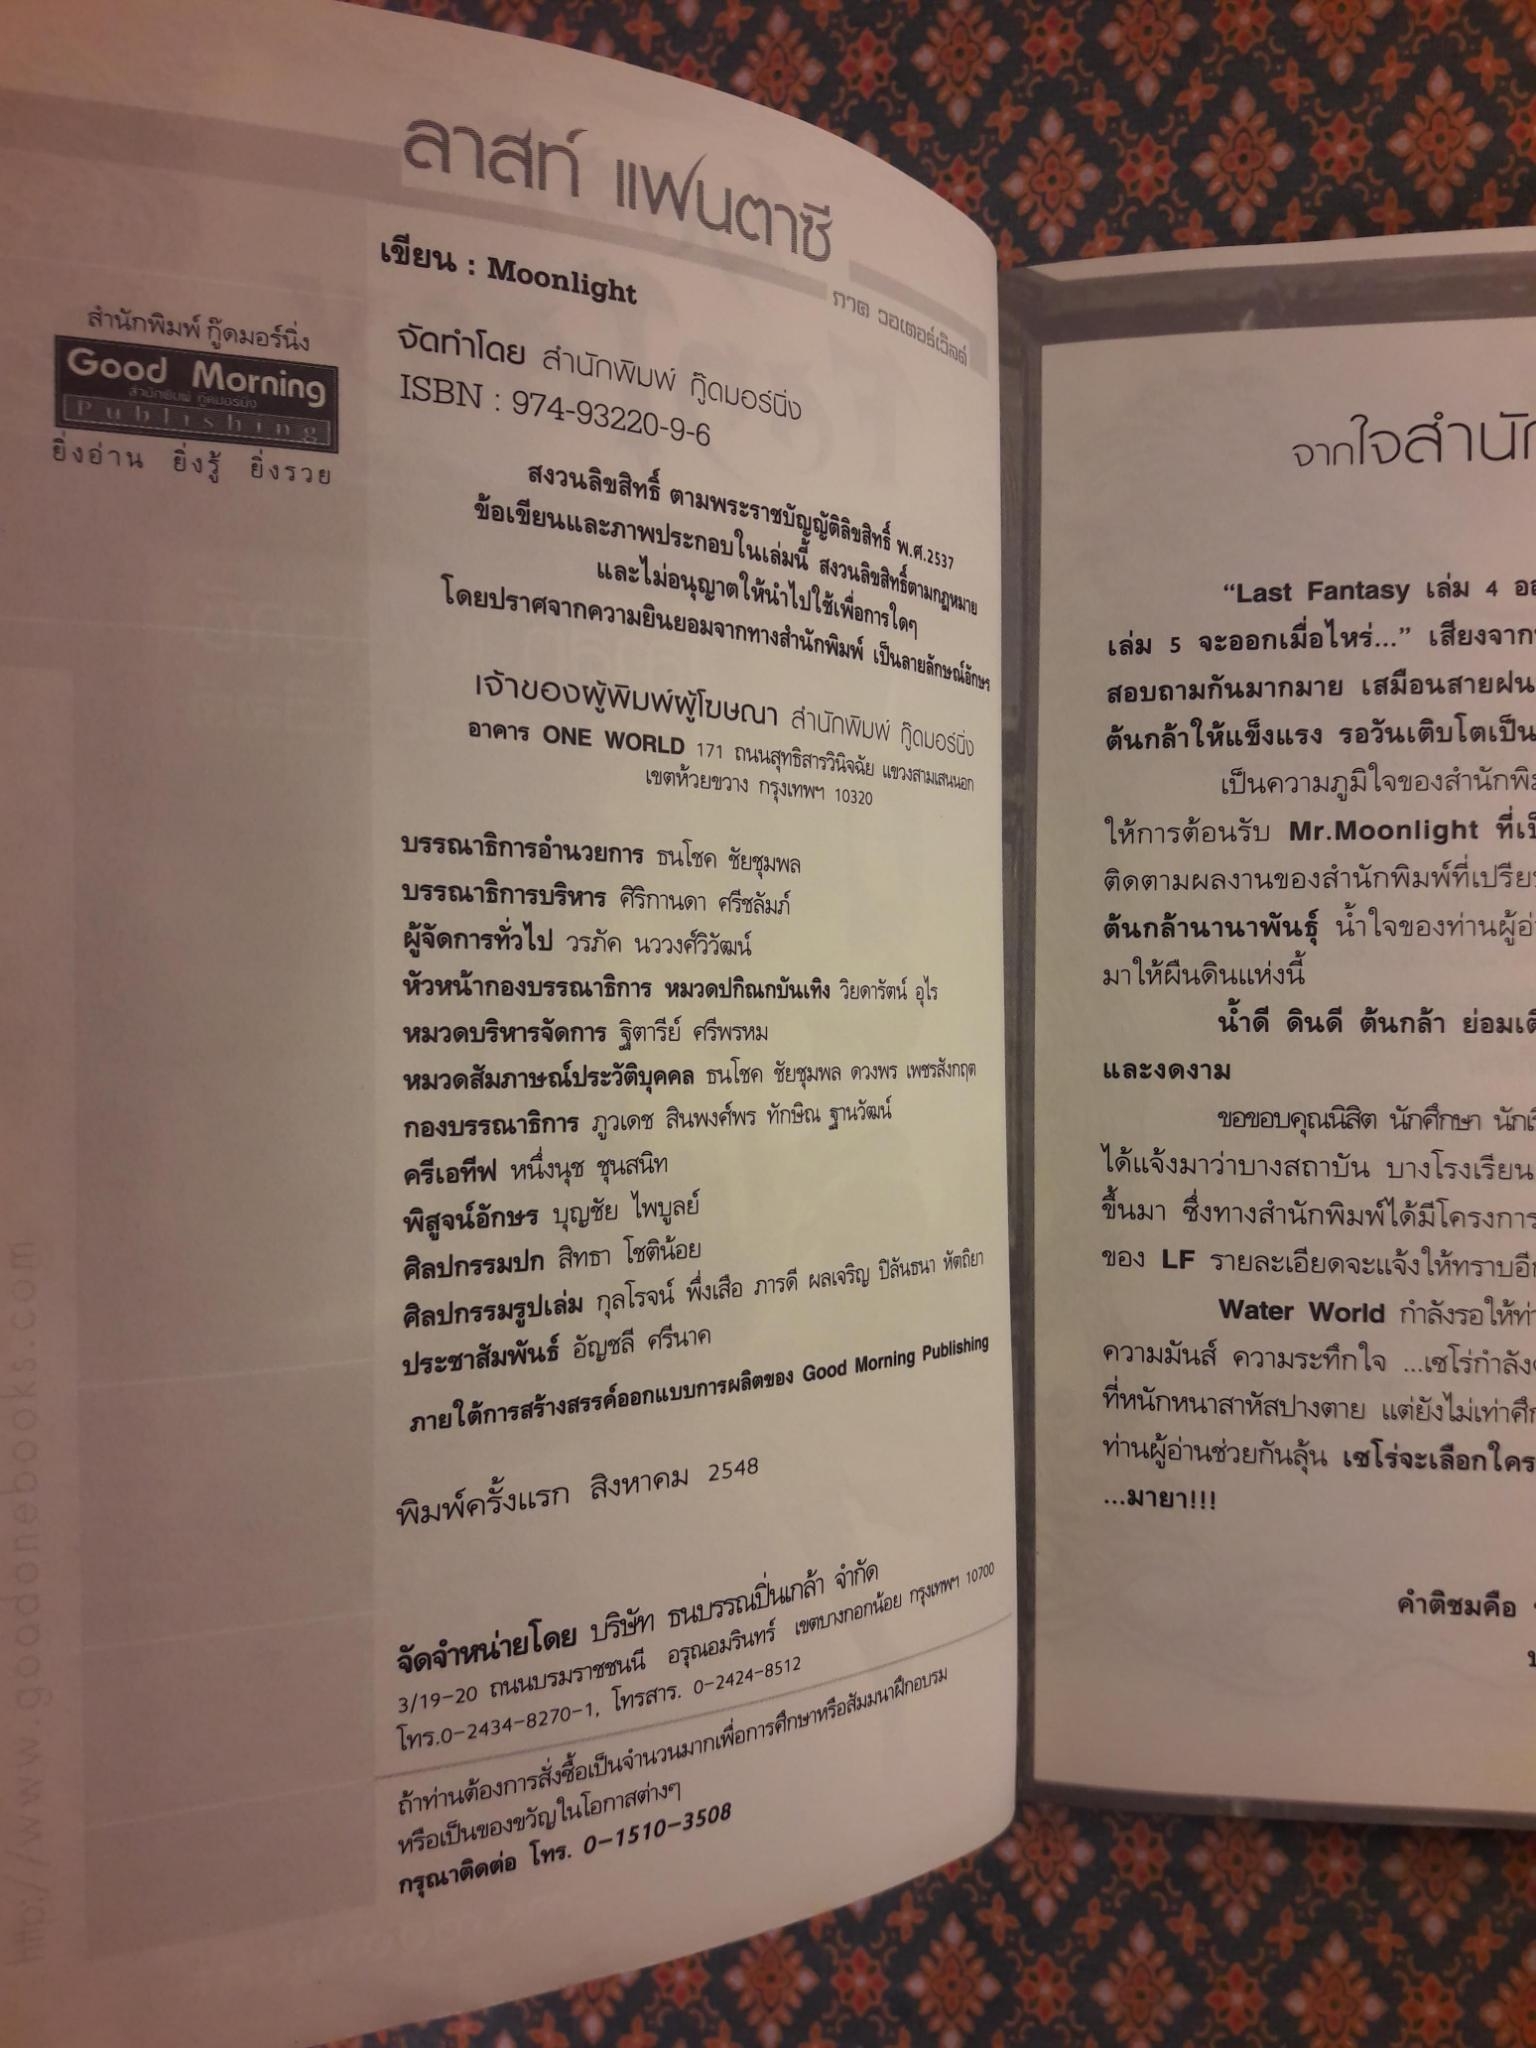 ลาสท์ แฟนตาซี
ภาค วอเตอร์เวิลด์
เขียน : Moonlight
สำนักพิมพ์ กู๊ดมอร์นิ่ง
Good Morning
สำนักพิมพ์ กู๊ดมอร์นิ่ง
Publishing
ยิ่งอ่าน ยิ่งรู้ ยิ่งรวย
จัดทำโดย สำนักพิมพ์ กู๊ดมอร์นิ่ง
ISBN : 974-93220-9-6
สงวนลิขสิทธิ์ ตามพระราชบัญญัติลิขสิทธิ์ พ.ศ.2537
ข้อเขียนและภาพประกอบในเล่มนี้ สงวนลิขสิทธิ์ตามกฎหมาย
และไม่อนุญาตให้นำไปใช้เพื่อการใดๆ
โดยปราศจากความยินยอมจากทางสำนักพิมพ์ เป็นลายลักษณ์อักษร
เจ้าของผู้พิมพ์ผู้โฆษณา สำนักพิมพ์ กู๊ดมอร์นิ่ง
อาคาร ONE WORLD 171 ถนนสุทธิสารวินิจฉัย แขวงสามเสนนอก
เขตห้วยขวาง กรุงเทพฯ 10320
บรรณาธิการอำนวยการ ธนโชค ชัยชุมพล
บรรณาธิการบริหาร ศิริกานดา ศรีชลัมภ์
ผู้จัดการทั่วไป วรภัค นววงศ์วิวัฒน์
หัวหน้ากองบรรณาธิการ หมวดปกิณกบันเทิง วิยดารัตน์ อุไร
หมวดบริหารจัดการ ฐิตารีย์ ศรีพรหม
หมวดสัมภาษณ์ประวัติบุคคล ธนโชค ชัยชุมพล ดวงพร เพชรสังกฤต
กองบรรณาธิการ ภูวเดช สินพงศ์พร ทักษิณ ฐานวัฒน์
ครีเอทีฟ หนึ่งนุช ชุนสนิท
พิสูจน์อักษร บุญชัย ไพบูลย์
ศิลปกรรมปก สิทธา โชติน้อย
ศิลปกรรมรูปเล่ม กุลโรจน์ พึ่งเสือ ภารดี ผลเจริญ ปิลันธนา หัตถิยา
ประชาสัมพันธ์ อัญชลี ศรีนาค
ภายใต้การสร้างสรรค์ออกแบบการผลิตของ Good Morning Publishing
พิมพ์ครั้งแรก สิงหาคม 2548
จัดจำหน่ายโดย บริษัท ธนบรรณปิ่นเกล้า จำกัด
3/19-20 ถนนบรมราชชนนี อรุณอมรินทร์ เขตบางกอกน้อย กรุงเทพฯ 10700
โทร.0-2434-8270-1, โทรสาร. 0-2424-8512
ถ้าท่านต้องการสั่งซื้อเป็นจำนวนมากเพื่อการศึกษาหรือสัมมนาฝึกอบรม
หรือเป็นของขวัญในโอกาสต่างๆ
กรุณาติดต่อ โทร. 0-1510-3508
http://www.goodonebooks.com
จากใจสำนัก
"Last Fantasy เล่ม 4
เล่ม 5 จะออกเมื่อไหร่..." เสียงจาก
สอบถามกันมากมาย เสมือนสายฝน
ต้นกล้าให้แข็งแรง รอวันเติบโตเป็น
เป็นความภูมิใจของสำนักพิม
ให้การต้อนรับ Mr.Moonlight ที่
ติดตามผลงานของสำนักพิมพ์ที่เปรีย
ต้นกล้านานาพันธุ์ น้ำใจของท่านผู้
มาให้ผืนดินแห่งนี้
น้ำดี ดินดี ต้นกล้า ย่อม
และงดงาม
ขอขอบคุณนิสิต นักศึกษา
ได้แจ้งมาว่าบางสถาบัน บางโรงเรียน
ขึ้นมา ซึ่งทางสำนักพิมพ์ได้มีโครงการ
ของ LF รายละเอียดจะแจ้งให้ทราบ
Water World กำลังรอให้
ความมันส์ ความระทึกใจ ...เซโร่กำลัง
ที่หนักหนาสาหัสปางตาย แต่ยังไม่เท่า
ท่านผู้อ่านช่วยกันลุ้น เซโร่จะเลือกใคร
...มายา!!!
คำติชมคือ